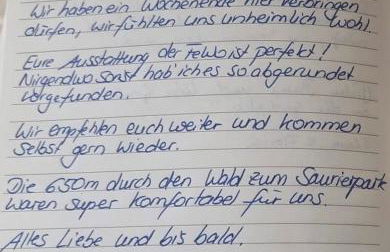 Wir haben ein Wochenende hier verbringen
dürfen, wir fühlten uns unheimlich wohl.
Eure Ausstattung der FeWo ist perfekt!
Nirgendwo sonst hab' ich es so abgerundet
vorgefunden.
Wir empfehlen euch weiter und kommen
selbst gern wieder.
Die 650m durch den Wald zum Saurierpark
waren super komfortabel für uns.
Alles Liebe und bis bald.